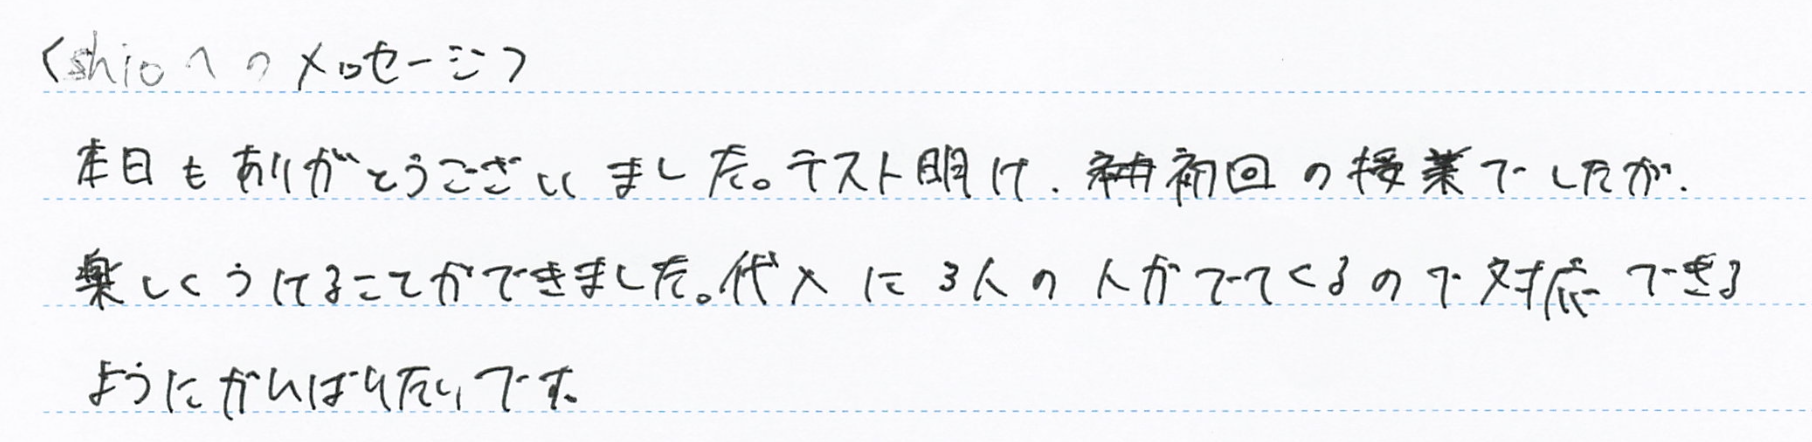 〈shioへのメッセージ〉
本日もありがとうございました。テスト明け、初回の授業でしたが、
楽しくうけることができました。代入に3人の人がでてくるので対応できる
ようにがんばりたいです。